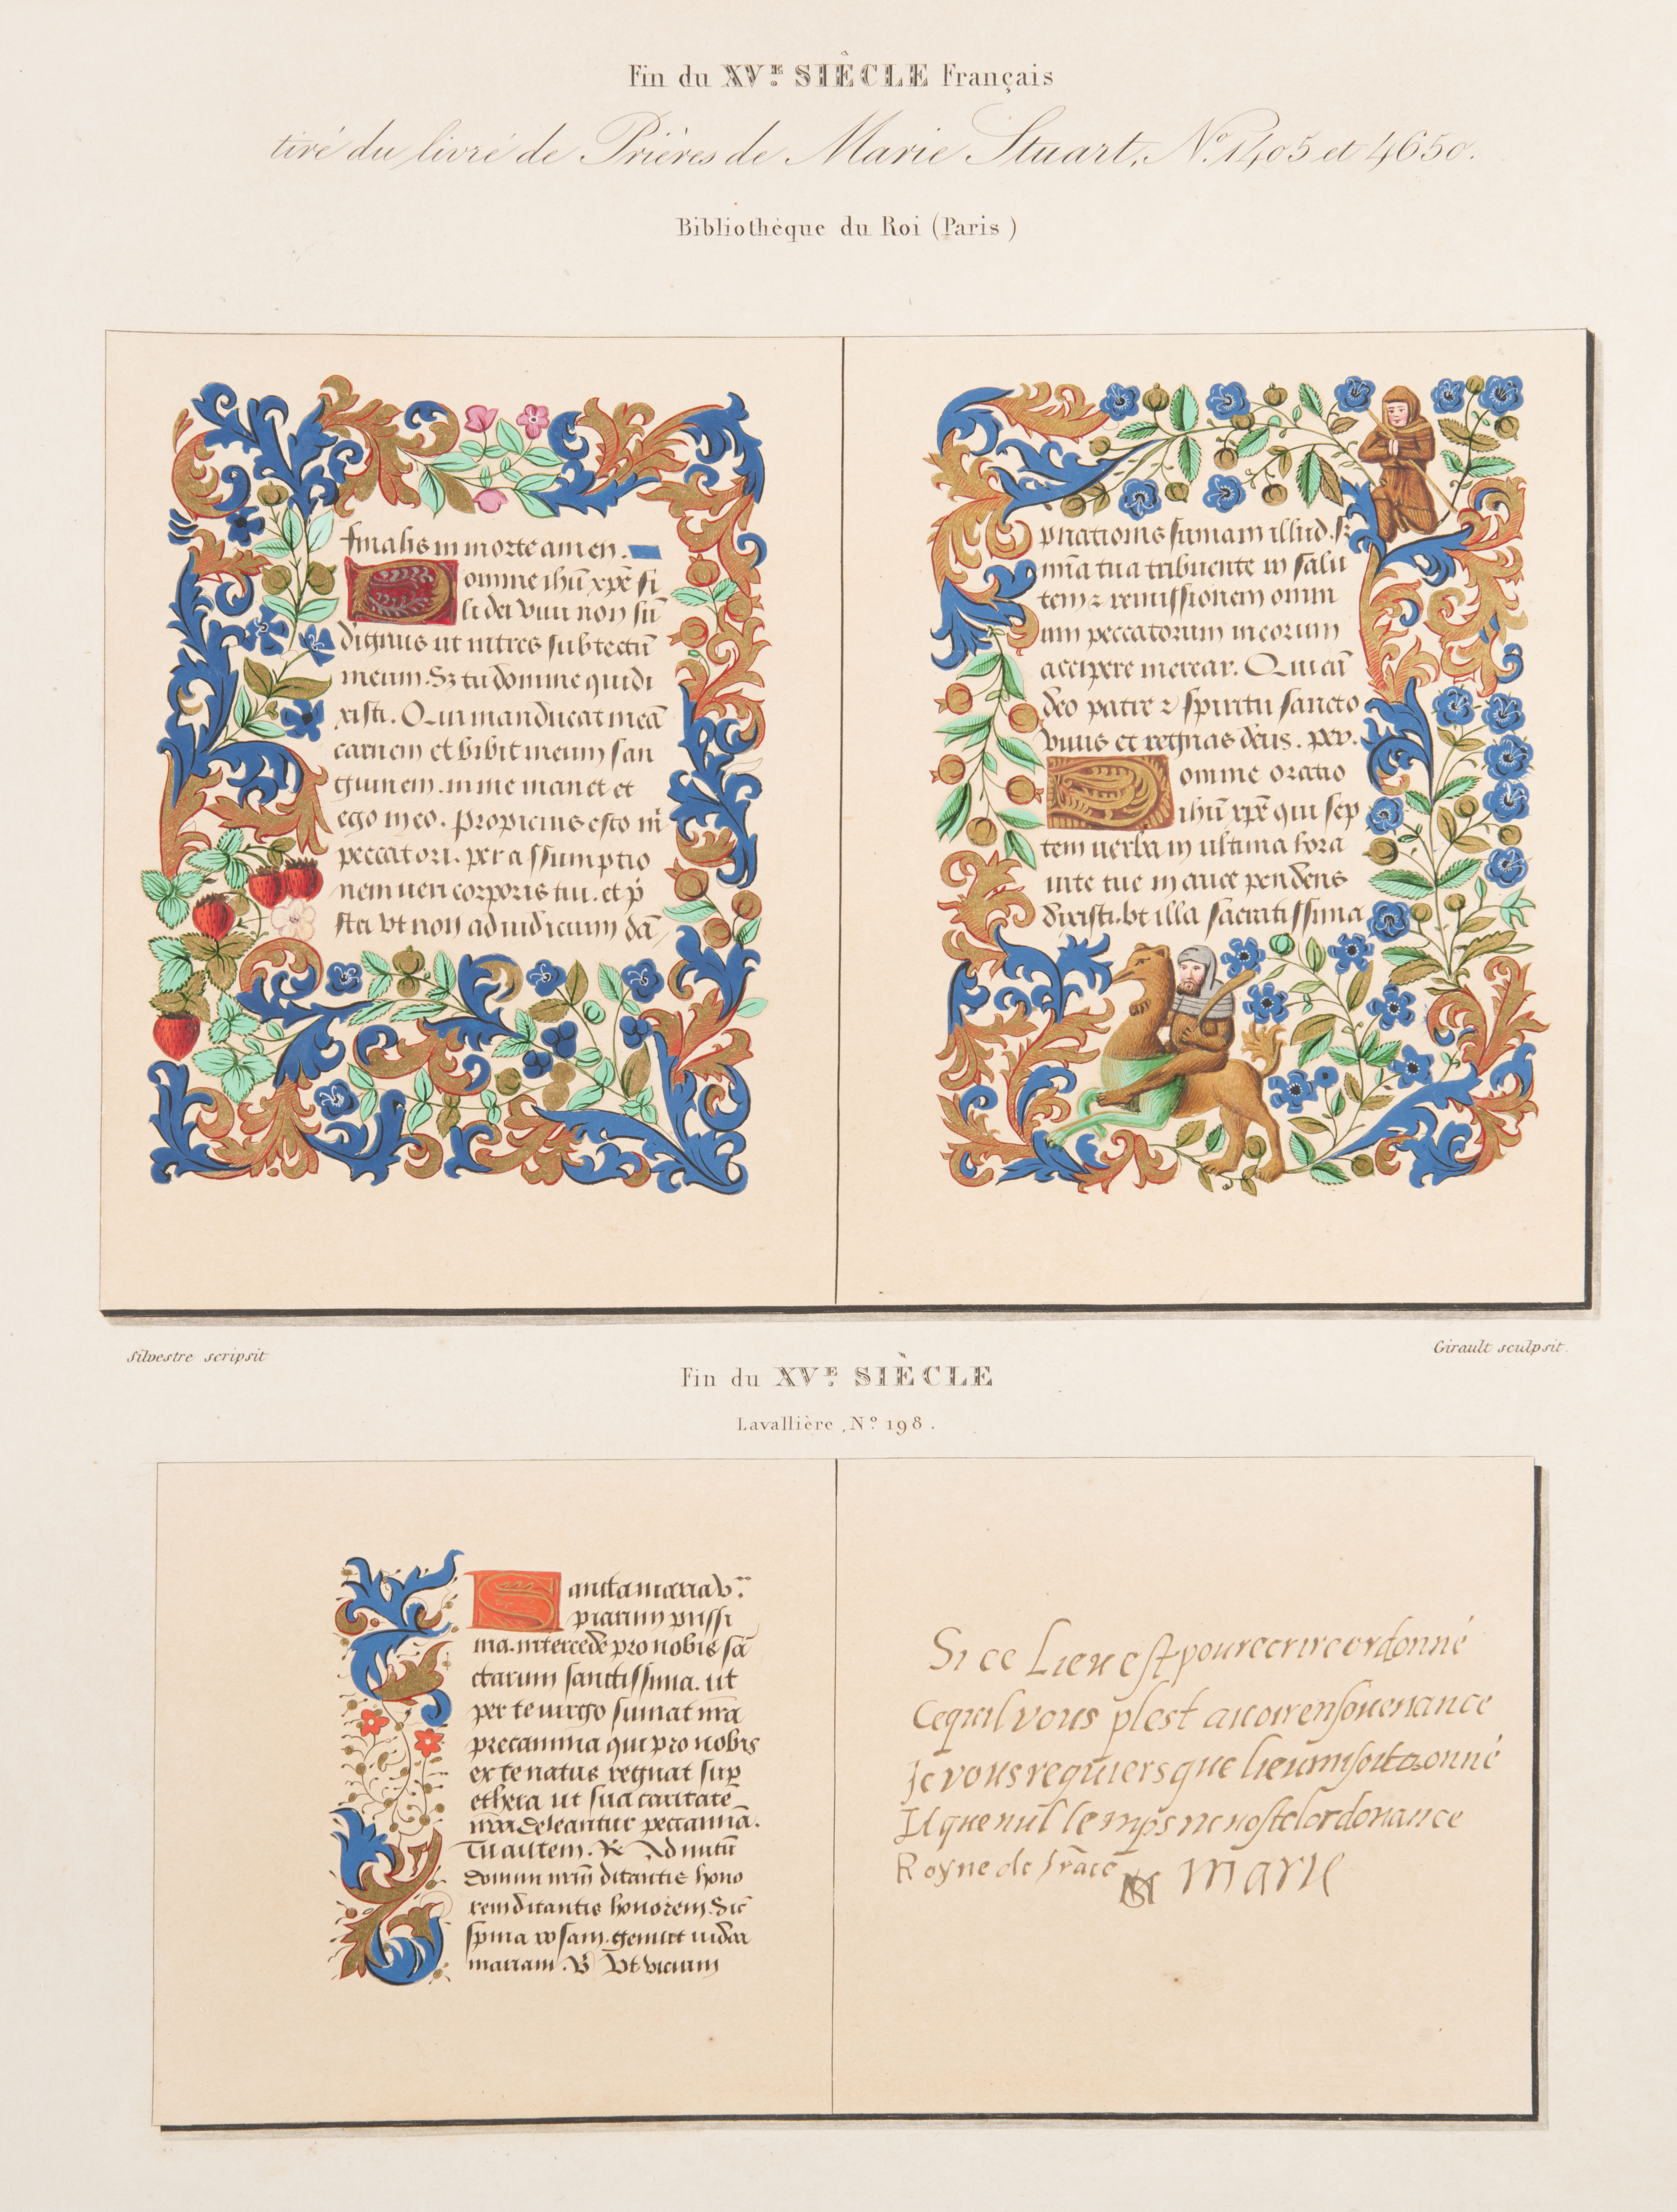 Fin du XVᴱ SIÈCLE Français
tiré du livre de Prières de Marie Stuart, Nº 1405 et 4650.
Bibliothèque du Roi (Paris)
finalis in morte amen.
Domine ihũ xp̃e fi
li dei viui non sũ
dignus ut intres sub tectũ
meum. Sꝫ tu domine qui di
xisti. Qui manducat meã
carnem et bibit meum san
guinem. in me manet et
ego in eo. Propicius esto m̃
peccatori. per assumptio
nem ueri corporis tui. et p̃
sta vt non ad iudicium dã
pnationis sumam illud. sꝫ
mĩa tua tribuente in salu
tem ⁊ remissionem omni
um peccatorum meorum
accipere merear. Qui cũ
deo patre ⁊ spiritu sancto
viuis et regnas deus. per.
Domine oratio
ihũ xp̃e qui sep
tem uerba in ultima hora
uite tue in cruce pendens
dixisti. vt illa sacratissima
Silvestre scripsit
Girault sculpsit.
Fin du XVᴱ SIÈCLE
Lavallière, Nº 198.
Sancta maria v
piarum piissi
ma. intercede pro nobis sã
ctarum sanctissima. ut
per te uirgo sumat nr̃a
precamina qui pro nobis
ex te natus regnat sup̱
ethera ut sua caritate
nr̃a deleantur peccamĩa.
Tu autem. ℟ Ad nutũ
domini nr̃m ditantis hono
rem ditantis honorem. Sic
spina rosam. genuit iudea
mariam. ℣ Vt vicium
Si ce Lieu est pour ecrire ordonné
Ce quil vous plest auoir en souuenance
Je vous requiers que lieu misoit donné
Et que nul temps ne noste lordonance
Royne de frãce Marie